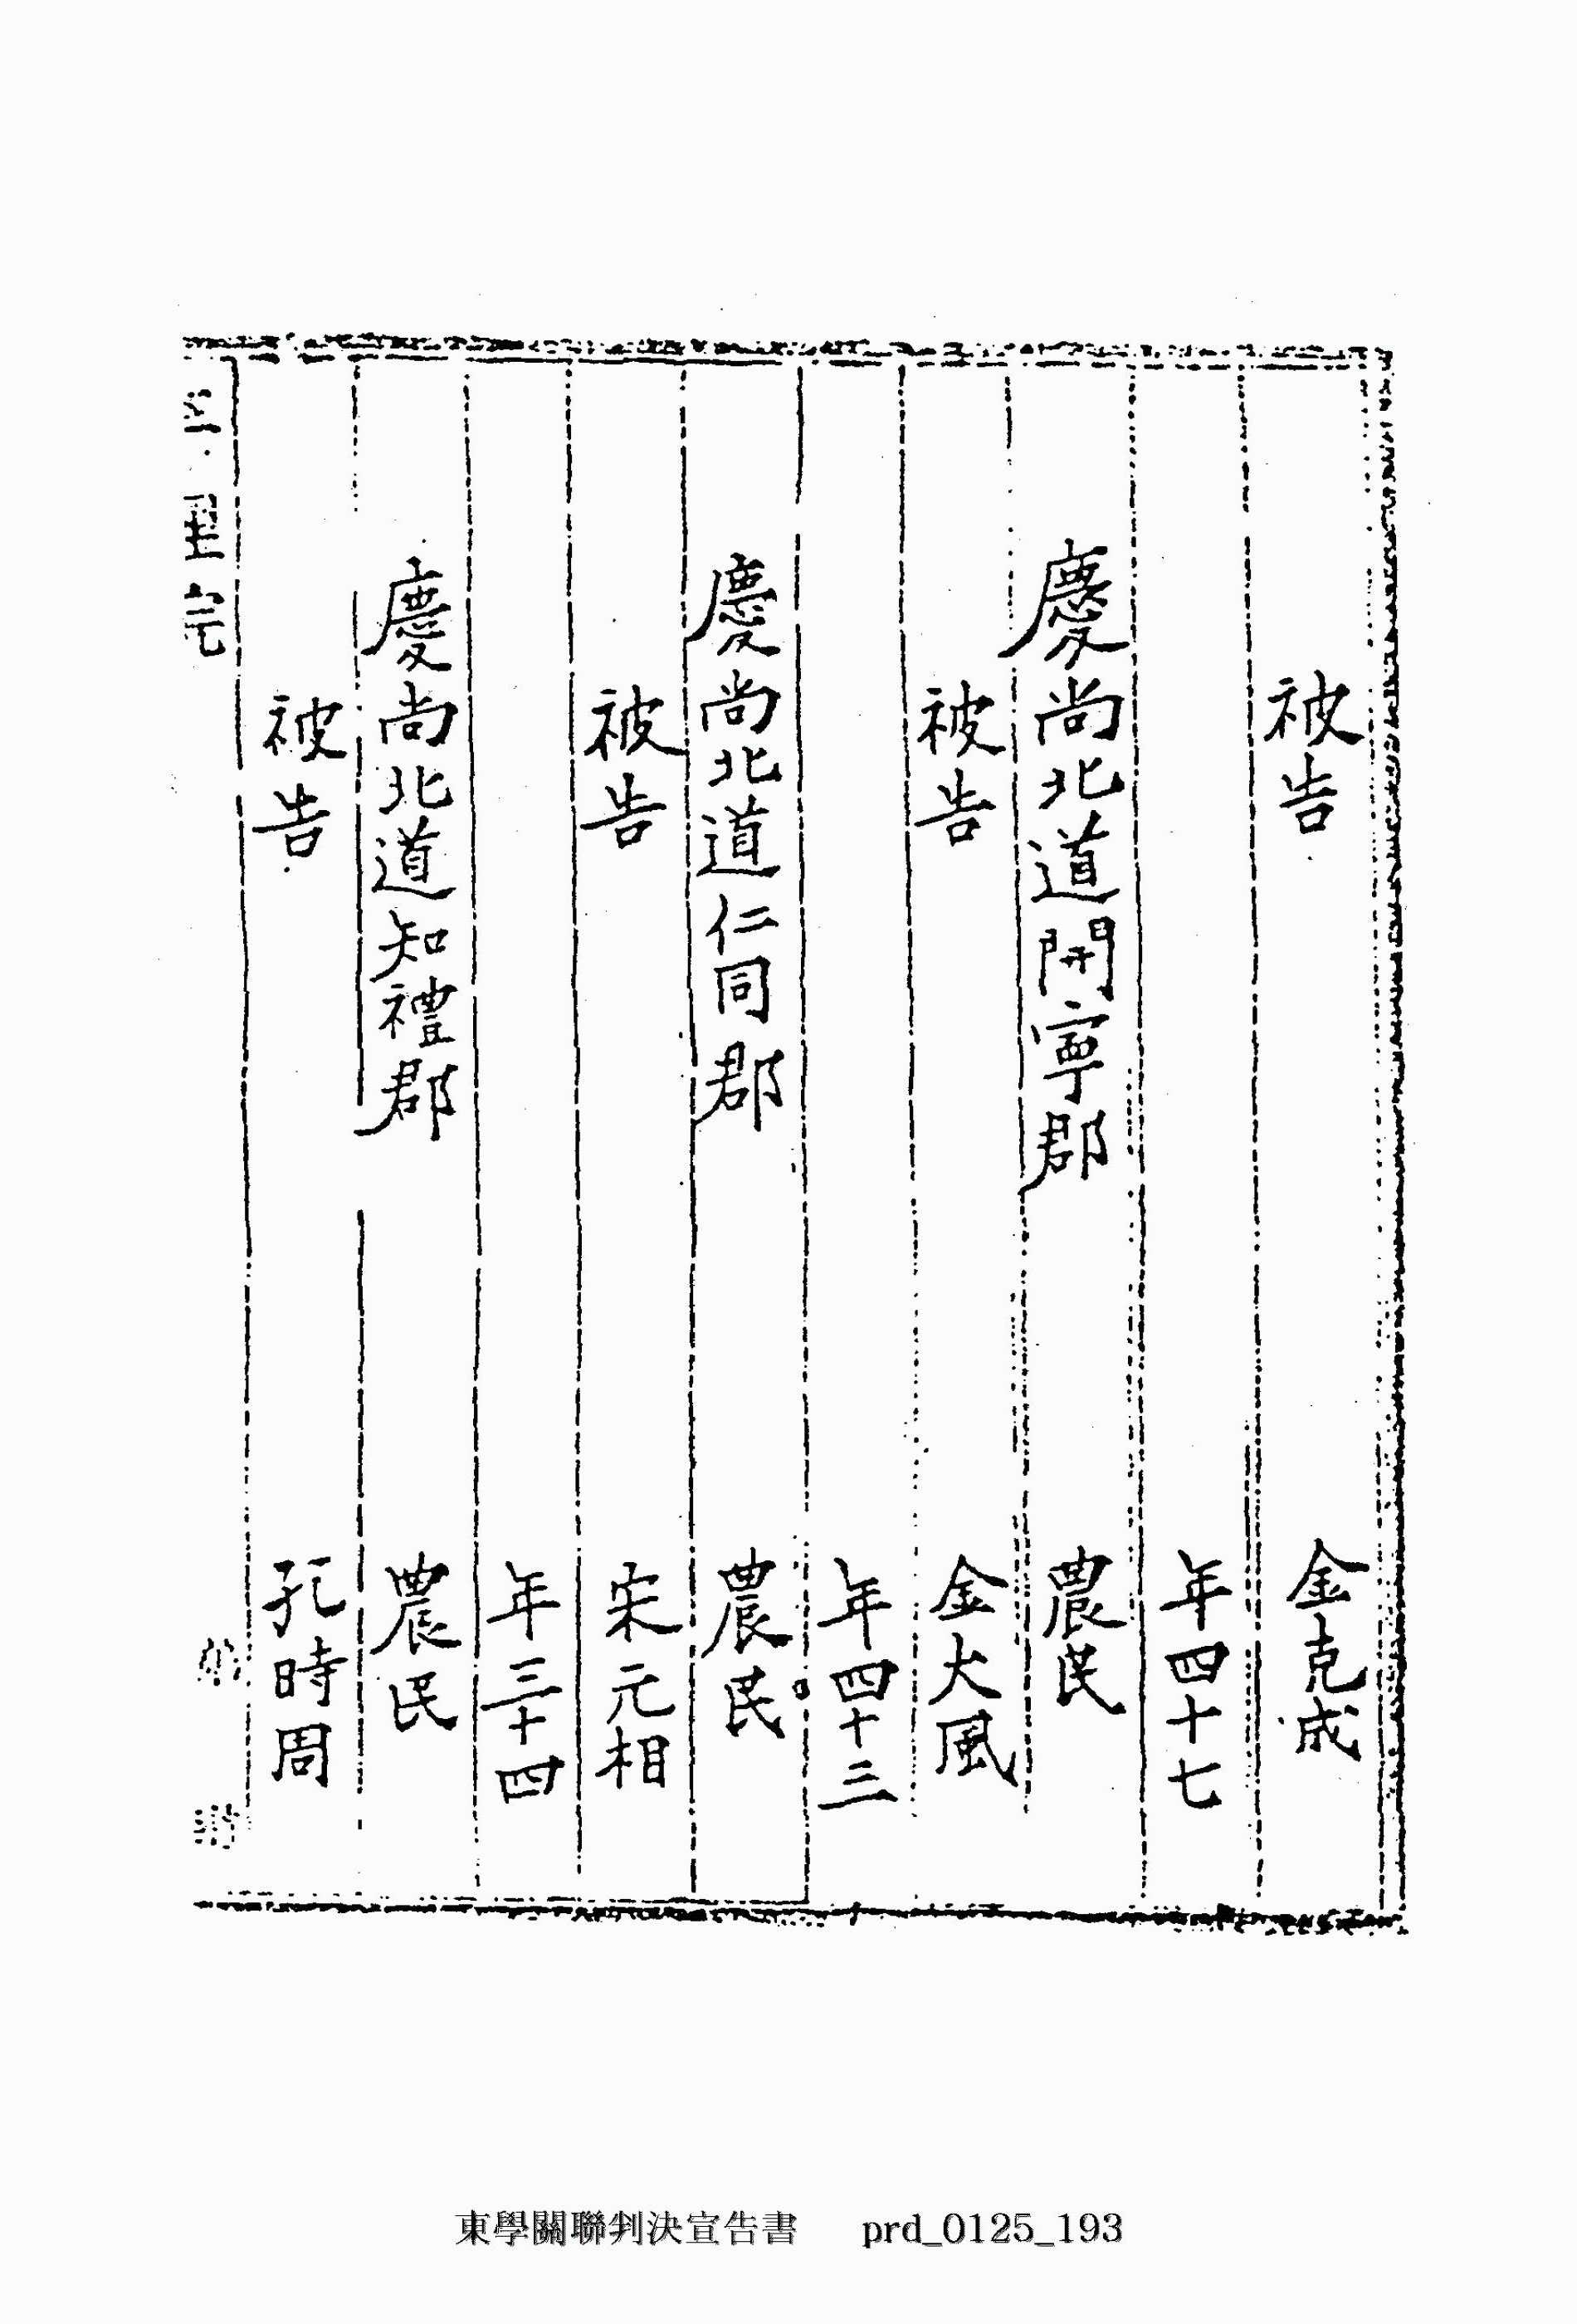 被告 金克成
年四十七
慶尚北道開寧郡 農民
被告 金大風
年四十三
慶尚北道仁同郡 農民
被告 宋元相
年三十四
慶尚北道知禮郡 農民
被告 孔時周
東學關聯判決宣告書 prd_0125_193